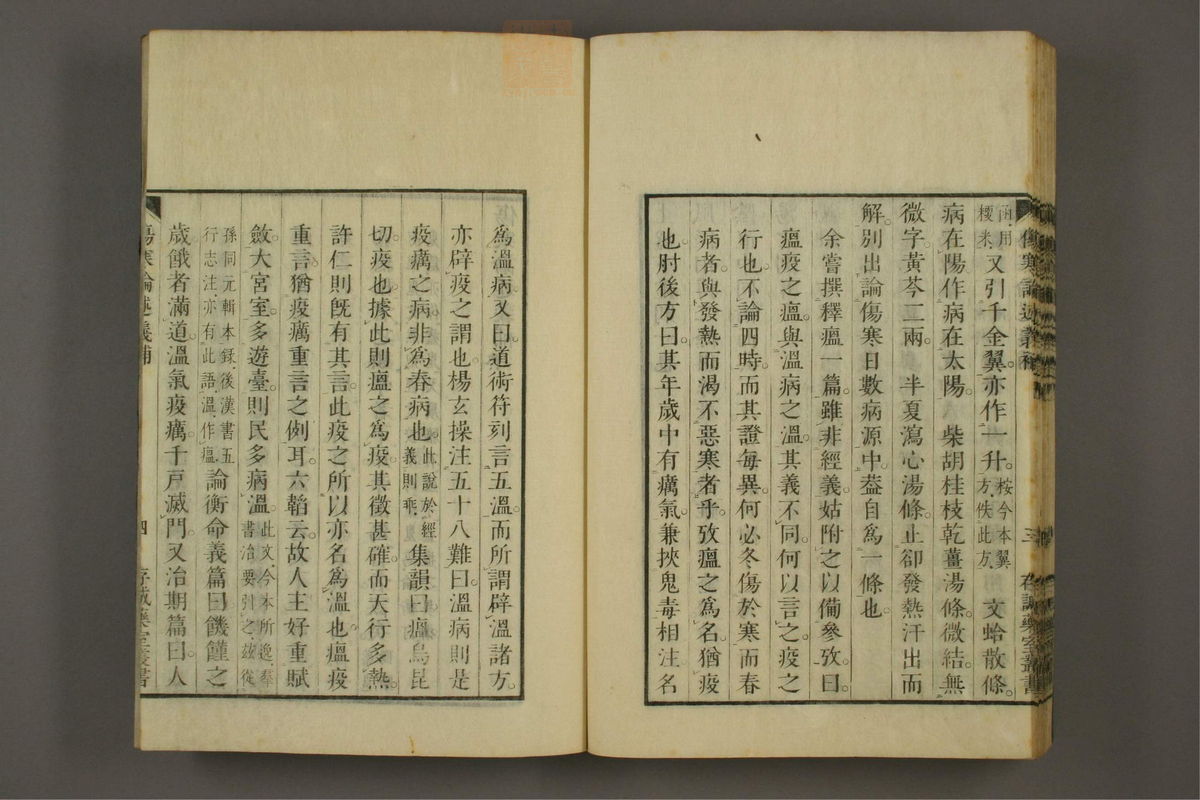 傷寒論述義補
三
存誠藥室叢書
函用粳米又引千金翼亦作一升桉今本翼方佚此方文蛤散條
病在陽作病在太陽柴胡桂枝乾薑湯條微結無
微字黃芩二兩半夏瀉心湯條止卻發熱汗出而
解別出論傷寒日數病源中葢自爲一條也
余嘗撰釋瘟一篇雖非經義姑附之以備參攷曰
瘟疫之瘟與溫病之溫其義不同何以言之疫之
行也不論四時而其證每異何必冬傷於寒而春
病者與發熱而渴不惡寒者乎攷瘟之爲名猶疫
也肘後方曰其年歲中有癘氣兼挾鬼毒相注名
爲溫病又曰道術符刻言五溫而所謂辟溫諸方
亦辟疫之謂也楊玄操注五十八難曰溫病則是
疫癘之病非爲春病也此說於經義則乖集韻曰瘟烏昆
切疫也據此則瘟之爲疫其徵甚確而天行多熱
許仁則旣有其言此疫之所以亦名爲溫也瘟疫
重言猶疫癘重言之例耳六韜云故人主好重賦
斂大宮室多遊臺則民多病溫此文今本所逸羣書治要引之玆從
孫同元輯本錄後漢書五行志注亦有此語溫作瘟論衡命義篇曰饑饉之
歲餓者滿道溫氣疫癘千戶滅門又治期篇曰人
傷寒論述義補
四
存誠藥室叢書